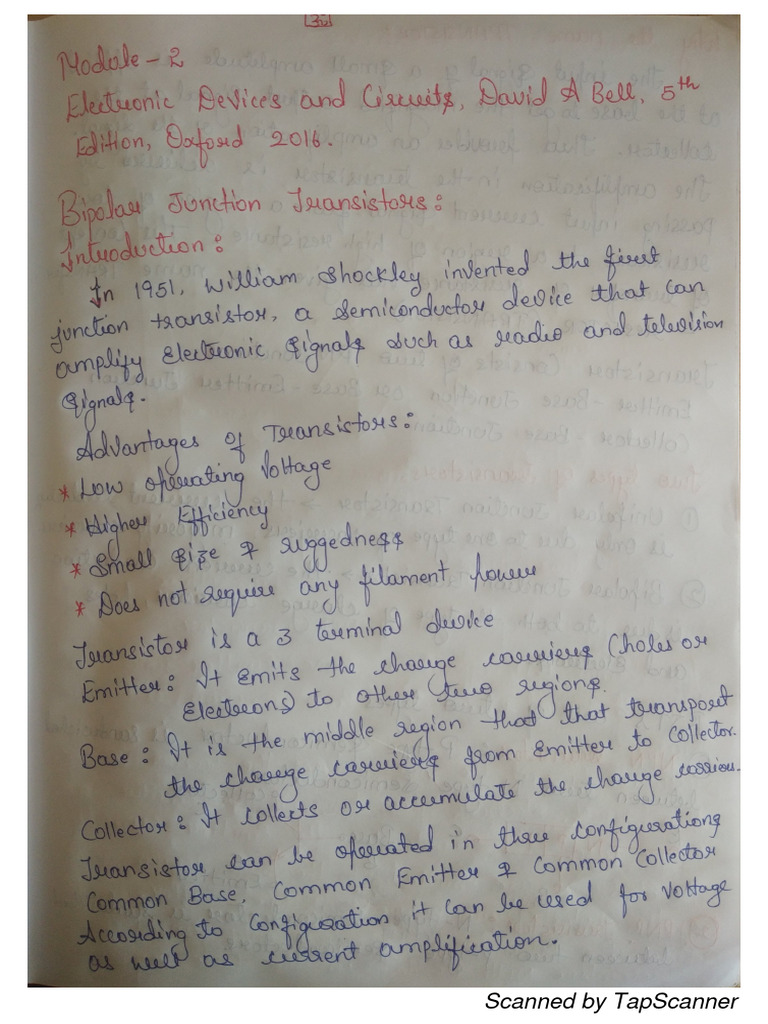 Module-2
Electronic Devices and Circuits, David A Bell, 5th
Edition, Oxford 2016.
Bipolar Junction Transistors:
Introduction:
In 1951, William Shockley invented the first
junction transistor, a semiconductor device that can
amplify electronic signals such as radio and television
signals.
Advantages of Transistors:
* Low operating Voltage
* Higher Efficiency
* Small size & ruggedness
* Does not require any filament power
Transistor is a 3 terminal device
Emitter: It emits the charge carriers (holes or
Electrons) to other two regions.
Base: It is the middle region that that transport
the charge carriers from Emitter to Collector.
Collector: It collects or accumulate the charge carriers.
Transistor can be operated in three configurations
Common Base, Common Emitter & Common Collector
According to Configuration it can be used for voltage
as well as current amplification.
Scanned by TapScanner